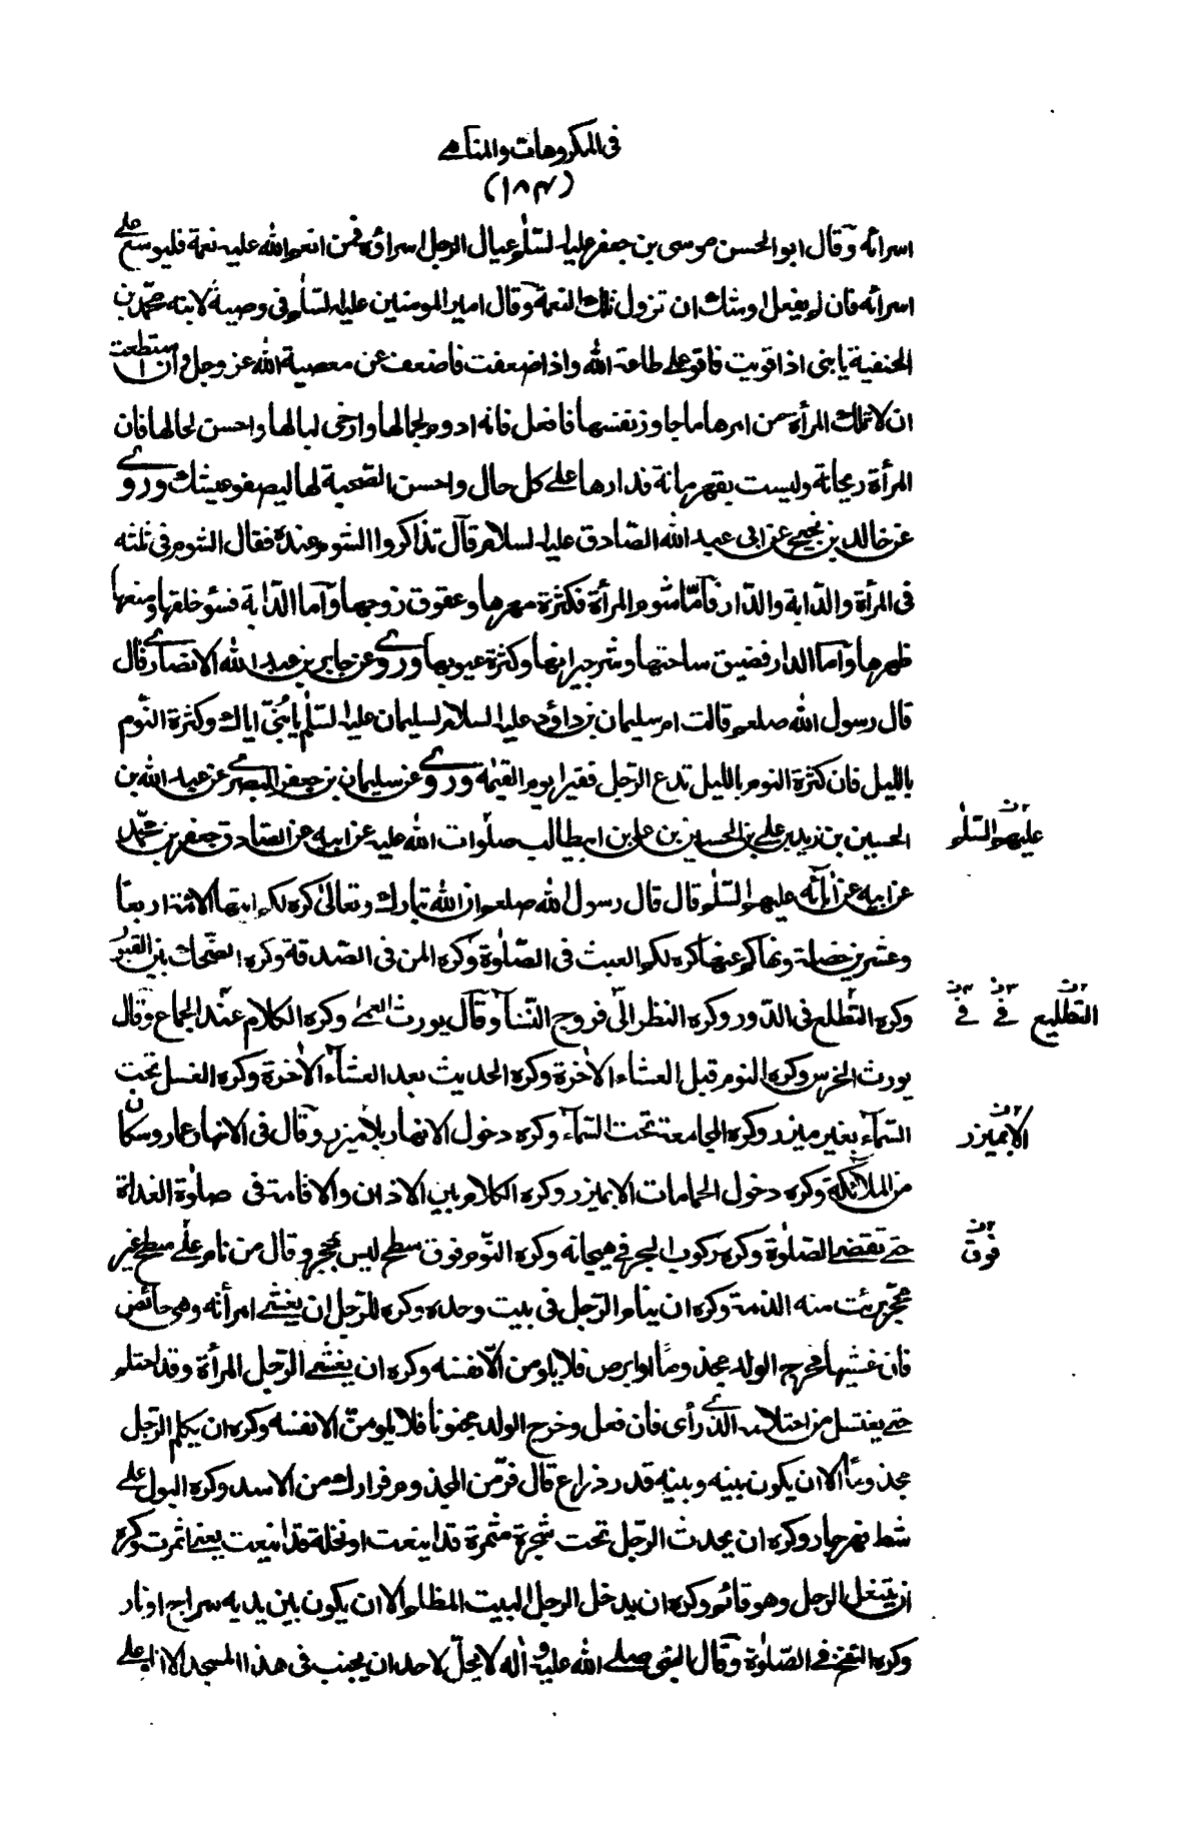 فى المكروهات والمناهى
(١٨٣)
اسرائه وقال ابو الحسن موسى بن جعفر عليه السلم عيال الرجل اسراؤه فمن انعم الله عليه نعمة فليوسع على
اسرائه فان لم يفعل اوشك ان تزول تلك النعمة وقال امير المومنين عليه السلم فى وصية لابنه محمد بن
الحنفية يا بنى اذا قويت فاقو على طاعة الله واذا ضعفت فاضعف عن معصية الله عز وجل وان استطعت
ان لا تملك المرأة من امرها ما جاوز نفسها فافعل فانه ادوم لجمالها وارخى لبالها واحسن لحالها فان
المرأة ريحانة وليست بقهرمانة فدارها على كل حال واحسن الصحبة لها ليصفو عيشك وروى
عن خالد بن نجيح عن ابى عبد الله الصادق عليه السلام قال تذاكروا الشوم عنده فقال الشوم فى ثلثه
فى المرأة والدابة والدار فاما شوم المرأة فكثرة مهرها وعقوق زوجها واما الدابة فسوء خلقها ومنعها
ظهرها واما الدار فضيق ساحتها وشر جيرانها وكثرة عيوبها وروى عن جابر بن عبد الله الانصارى قال
قال رسول الله صلعم قالت ام سليمان بن داؤد عليه السلام لسليمان عليه السلم يا بنى اياك وكثرة النوم
بالليل فان كثرة النوم بالليل تدع الرجل فقيرا يوم القيمه وروى عن سليمان بن جعفر البصرى عن عبد الله بن
الحسين بن زيد بن على بن الحسين بن على بن ابيطالب صلوات الله عليه عن ابيه عن الصادق جعفر بن محمد
عليهم السلم
عن ابيه عن آبائه عليهم السلم قال قال رسول الله صلعم ان الله تبارك وتعالى كره لكم ايتها الامة اربعا
وعشرين خصلة ونهاكم عنها كره لكم العبث فى الصلوة وكره المن فى الصدقة وكره الضحك بين القبور
وكره التطلع فى الدور وكره النظر الى فروج النسآ وقال يورث العمى وكره الكلام عند الجماع وقال
التطليع فى فى
يورث الخرس وكره النوم قبل العشاء الاخرة وكره الحديث بعد العشآء الاخرة وكره الغسل تحت
السمآء بغير ميزر وكره المجامعة تحت السمآء وكره دخول الانهار بلا ميزر وقال فى الانهار عمار وسكان
الا بميزر
من الملآئكة وكره دخول الحمامات الا بميزر وكره الكلام بين الاذان والاقامة فى صلوة الغداة
حتى تقضى الصلوة وكره ركوب البحر فى هيجانه وكره النوم فوق سطح ليس بمحجر وقال من نام على سطح غير
فوق
محجر برئت منه الذمة وكره ان ينام الرجل فى بيت وحده وكره للرجل ان يغشى امرأته وهى حائض
فان غشيها فخرج الولد مجذوما او ابرص فلا يلومن الا نفسه وكره ان يغشى الرجل المرأة وقد احتلم
حتى يغتسل من احتلامه الذى رأى فان فعل وخرج الولد مجنونا فلا يلومن الا نفسه وكره ان يكلم الرجل
مجذوما الا ان يكون بينه وبينه قدر ذراع قال فر من المجذوم فرارك من الاسد وكره البول على
شط نهر جار وكره ان يحدث الرجل تحت شجرة مثمرة قد اينعت او نخلة قد اينعت يعنى اثمرت وكره
ان يتنعل الرجل وهو قائم وكره ان يدخل الرجل البيت المظلم الا ان يكون بين يديه سراج او نار
وكره النفخ فى الصلوة وقال النبى صلى الله عليه و اله لا يحل لاحد ان يجنب فى هذا المسجد الا انا وعلى